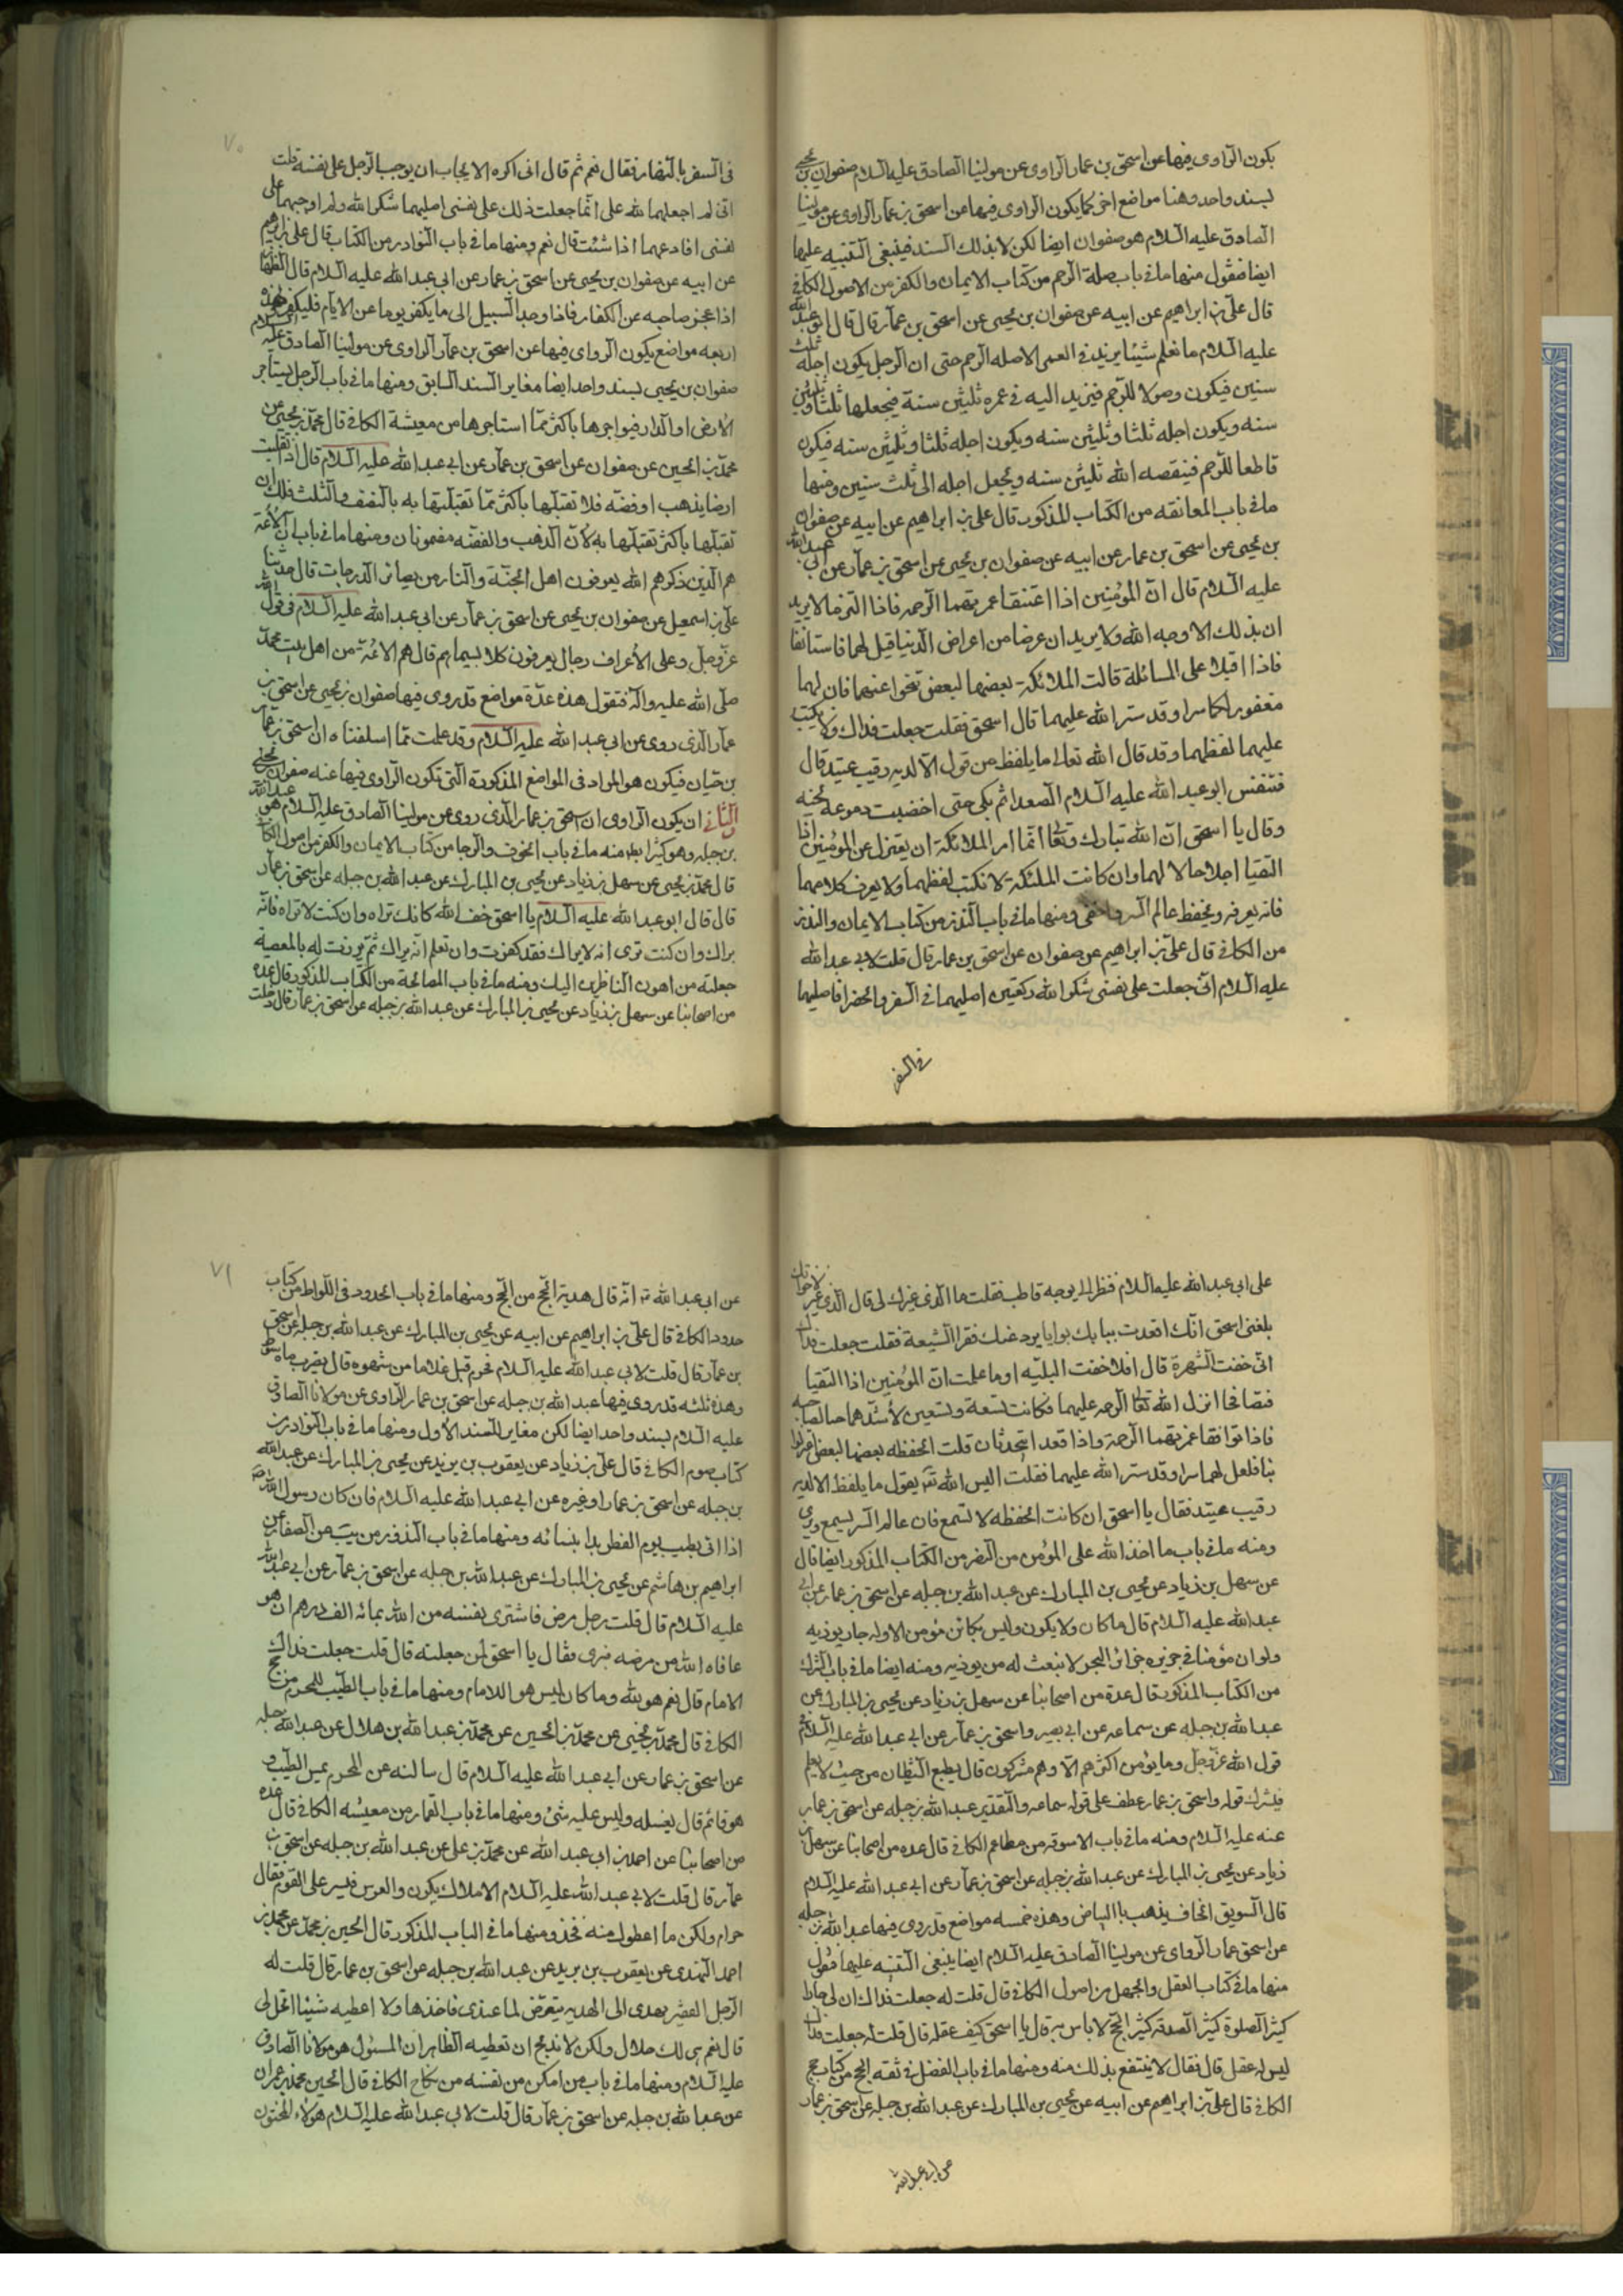 يكون الراوي فيها عن اسحق بن عمار الراوي عن مولينا الصادق عليه السلام صفوان بن يحيى
بسند واحد وهنا مواضع اخر كما يكون الراوي فيها عن اسحق بن عمار الراوي عن مولينا
الصادق عليه السلام هو صفوان ايضا لكن لا بذلك السند فينبغي التنبيه عليها
ايضا فنقول منها ما في باب صلة الرحم من كتاب الايمان والكفر من الاصول الكافي
قال علي بن ابراهيم عن ابيه عن صفوان بن يحيى عن اسحق بن عمار قال قال ابو عبد الله
عليه السلام ما نعلم شيئا يزيد في العمر الا صله الرحم حتى ان الرجل يكون اجله ثلث
سنين فيكون وصولا للرحم فيزيد اليه في عمره ثلثين سنة فيجعلها ثلثا وثلثين
سنه ويكون اجله ثلثا وثلثين سنه ويكون اجله ثلثا وثلثين سنه فيكون
قاطعا للرحم فينقصه الله ثلثين سنه ويجعل اجله الى ثلث سنين ومنها
ما في باب المعانقه من الكتاب المذكور قال علي بن ابراهيم عن ابيه عن صفوان
بن يحيى عن اسحق بن عمار عن ابيه عن صفوان بن يحيى عن اسحق بن عمار عن ابي عبد الله
عليه السلام قال ان المؤمنين اذا اعتنقا غمرتهما الرحمه فاذا التزما لا يريد
ان بذلك الا وجه الله ولا يريدان عرضا من اعراض الدنيا قيل لهما فاستانفا
فاذا اقبلا على المسائلة قالت الملائكة بعضها لبعض تنحوا عنهما فان لهما
سرا وقد ستر الله عليهما قال اسحق فقلت جعلت فداك ولا يكتب
عليهما لفظهما وقد قال الله تعالى ما يلفظ من قول الا لديه رقيب عتيد قال
فتنفس ابو عبد الله عليه السلام الصعداء ثم بكى حتى اخضبت دموعه لحيته
وقال يا اسحق ان الله تبارك وتعالى انما امر الملائكة ان يعتزل عن المؤمنين اذا
التقيا اجلالا لهما وان كانت الملئكة لا تكتب لفظهما ولا يعرف كلامهما
فانه يعرفه ويحفظ عالم السر واخفى ومنها ما في باب النذر من كتاب الايمان والنذر
من الكافي قال علي بن ابراهيم عن صفوان عن اسحق بن عمار قال قلت لابي عبد الله
عليه السلام اني جعلت على نفسي شكرا لله ركعتين اصليهما في السفر والحضر افاصليهما
في السفر
٧٠
في السفر بالنهار فقال نعم ثم قال اني اكره الايجاب ان يوجب الرجل على نفسه قلت
اني لم اجعلهما لله علي انما جعلت ذلك على نفسي اصليهما شكرا لله ولم اوجبهما على
نفسي افادعهما اذا شئت قال نعم ومنها ما في باب النوادر من الكتاب قال علي بن ابراهيم
عن ابيه عن صفوان بن يحيى عن اسحق بن عمار عن ابي عبد الله عليه السلام قال الظهار
اذا عجز صاحبه عن الكفار فاذا وجد السبيل الى ما يكفر يوما عن الايام فليكفر فهذه
اربعه مواضع يكون الراوي فيها عن اسحق بن عمار الراوي عن مولينا الصادق عليه السلام
صفوان بن يحيى بسند واحد ايضا مغاير السند السابق ومنها ما في باب الرجل يستاجر
الارض او الدار فيواجرها باكثر مما استاجرها من معيشة الكافي قال محمد بن يحيى عن
محمد بن الحسين عن صفوان عن اسحق بن عمار عن ابي عبد الله عليه السلام قال اذا تقبلت
ارضا بذهب او فضه فلا تقبلها باكثر مما تقبلتها به بالنصف والثلث فلك ان
تقبلها باكثر تقبلتها به لان الذهب والفضه مضمونان ومنها ما في باب ان الائمة
هم الذين ذكرهم الله يعرفون اهل الجنة والنار من بصائر الدرجات قال حدثنا
علي بن اسمعيل عن صفوان بن يحيى عن اسحق بن عمار عن ابي عبد الله عليه السلام في قول الله
عز وجل وعلى الاعراف رجال يعرفون كلا بسيماهم قال هم الائمة من اهل بيت محمد
صلى الله عليه واله فنقول هذه عدة مواضع قد روى فيها صفوان بن يحيى عن اسحق بن
عمار الذي روى عن ابي عبد الله عليه السلام وقد علمت مما اسلفناه ان اسحق بن عمار
بن حيان فيكون هو المراد في المواضع المذكورة التي تكون الراوي فيها عنه صفوان بن يحيى
والثاني ان يكون الراوي ان اسحق بن عمار الذي روى عن مولينا الصادق عليه السلام هو عبد الله
بن جبله وهو كثير ايضا منه ما في باب الخوف والرجا من كتاب الايمان والكفر من اصول الكافي
قال محمد بن يحيى عن سهل بن زياد عن يحيى بن المبارك عن عبد الله بن جبله عن اسحق بن عمار
قال قال ابو عبد الله عليه السلام يا اسحق خف الله كانك تراه وان كنت لا تراه فانه
يراك وان كنت ترى انه لا يراك فقد كفرت وان تعلم انه يراك ثم برزت له بالمعصية
جعلته من اهون الناظرين اليك ومنه ما في باب المصافحة من الكتاب المذكور قال عده
من اصحابنا عن سهل بن زياد عن يحيى بن المبارك عن عبد الله بن جبله عن اسحق بن عمار قال دخلت
على ابي عبد الله عليه السلام فنظر الي بوجه قاطب فقلت ما الذي غيرك لي قال الذي غيرك لاخوانك
بلغني اسحق انك اقعدت ببابك بوابا يرد عنك فقرا الشيعة فقلت جعلت فداك
اني خفت الشهرة قال افلا خفت البليه اوما علمت ان المؤمنين اذا التقيا
فتصافحا انزل الله تعالى الرحمه عليهما فكانت تسعة وتسعين لاشدهما حبا لصاحبه
فاذا توافقا غمرتهما الرحمة واذا قعدا يتحدثان قلت الحفظه بعضها لبعض اعتزلوا
بنا فلعل لهما سرا وقد ستر الله عليهما فقلت اليس الله يقول ما يلفظ الا لديه
رقيب عتيد فقال يا اسحق ان كانت الحفظه لا تسمع فان عالم السر يسمع ويرى
ومنه ما في باب ما اخذ الله على المؤمن من الصبر من الكتاب المذكور ايضا قال
عن سهل بن زياد عن يحيى بن المبارك عن عبد الله بن جبله عن اسحق بن عمار عن ابي
عبد الله عليه السلام قال ما كان ولا يكون وليس بكائن مؤمن الا وله جار يوذيه
ولو ان مؤمنا في جزيره جزائر البحر لانبعث له من يوذيه ومنه ايضا ما في باب الشرك
من الكتاب المذكور قال عدة من اصحابنا عن سهل بن زياد عن يحيى بن المبارك عن
عبد الله بن جبله عن سماعه عن ابي بصير واسحق بن عمار عن ابي عبد الله عليه السلام في
قول الله عز وجل وما يؤمن اكثرهم الا وهم مشركون قال يطيع الشيطان من حيث لا يعلم
فيشرك قوله واسحق بن عمار عطف على قوله سماعه والتقدير عبد الله بن جبله عن اسحق بن عمار
عنه عليه السلام ومنه ما في باب الاسوقه من مطاعم الكافي قال عده من اصحابنا عن سهل بن
زياد عن يحيى بن المبارك عن عبد الله بن جبله عن اسحق بن عمار عن ابي عبد الله عليه السلام
قال السويق الجاف يذهب بالبياض وهذه خمسه مواضع قد روى فيها عبد الله بن جبله
عن اسحق عمار الرواي عن مولينا الصادق عليه السلام ايضا ينبغي التنبيه عليها فنقول
منها ما في كتاب العقل والجهل من اصول الكافي قال قلت له جعلت فداك ان لي جارا
كثير الصلوة كثير الصدقه كثير الحج لا باس به قال يا اسحق كيف عقله قال قلت له جعلت فداك
ليس له عقل قال فقال لا ينتفع بذلك منه ومنها ما في باب الفضل في نفقه الحج من كتاب حج
الكافي قال علي بن ابراهيم عن ابيه عن يحيى بن المبارك عن عبد الله بن جبله عن اسحق بن عمار
عن ابي عبد الله
٧١
عن ابي عبد الله انه قال هدية الحج من الحج ومنها ما في باب الحدود في اللواط من كتاب
حدود الكافي قال علي بن ابراهيم عن ابيه عن يحيى بن المبارك عن عبد الله بن جبله عن اسحق
بن عمار قال قلت لابي عبد الله عليه السلام محرم قبل غلاما من شهوه قال يضرب مائه سوط
وهذه ثلثه قد روى فيها عبد الله بن جبله عن اسحق بن عمار الراوي عن مولانا الصادق
عليه السلام بسند واحد ايضا لكن مغاير للسند الاول ومنها ما في باب النوادر من
كتاب صوم الكافي قال علي بن زياد عن يعقوب بن يزيد عن يحيى بن المبارك عن عبد الله
بن جبله عن اسحق بن عمار او غيره عن ابي عبد الله عليه السلام فان كان رسول الله
اذا اتي بطيب يوم الفطر بدا بنسائه ومنها ما في باب النذور من
ابراهيم بن هاشم عن يحيى بن المبارك عن عبد الله بن جبله عن اسحق بن عمار عن ابي عبد الله
عليه السلام قال قلت رجل مرض فاشترى نفسه من الله بمائه الف درهم ان هو
عافاه الله من مرضه فبرى فقال يا اسحق لمن جعلته قال قلت جعلت فداك
الامام قال نعم هو لله وما كان ليس هو للامام ومنها ما في باب الطيب للمحرم من حج
الكافي قال محمد بن يحيى عن محمد بن الحسين عن محمد بن عبد الله بن هلال عن عبد الله جبله
عن اسحق بن عمار عن ابي عبد الله عليه السلام قال سالته عن المحرم يمس الطيب و
هو قائم قال يغسله وليس عليه شئ ومنها ما في باب القمار من معيشه الكافي قال عده
من اصحابنا عن احمد بن ابي عبد الله عن محمد بن علي عن عبد الله بن جبله عن اسحق بن
عمار قال قلت لابي عبد الله عليه السلام الاملاك يكون والعرس فينثر على القوم فقال
حرام ولكن ما اعطوك منه فخذ ومنها ما في الباب المذكور قال الحسين بن محمد عن محمد بن
احمد النهدي عن يعقوب بن يزيد عن عبد الله بن جبله عن اسحق بن عمار قال قلت له
الرجل الفقير يهدى الي الهديه يتعرض لما عندي فاخذها ولا اعطيه شيئا اتحل لي
قال نعم هي لك حلال ولكن لا تدع ان تعطيه الظاهر ان المسئول هو مولانا الصادق
عليه السلام ومنها ما في باب من امكن من نفسه من نكاح الكافي قال الحسين محمد بن عمران
عن عبد الله بن جبله عن اسحق بن عمار قال قلت لابي عبد الله عليه السلام هؤلاء المخنثون